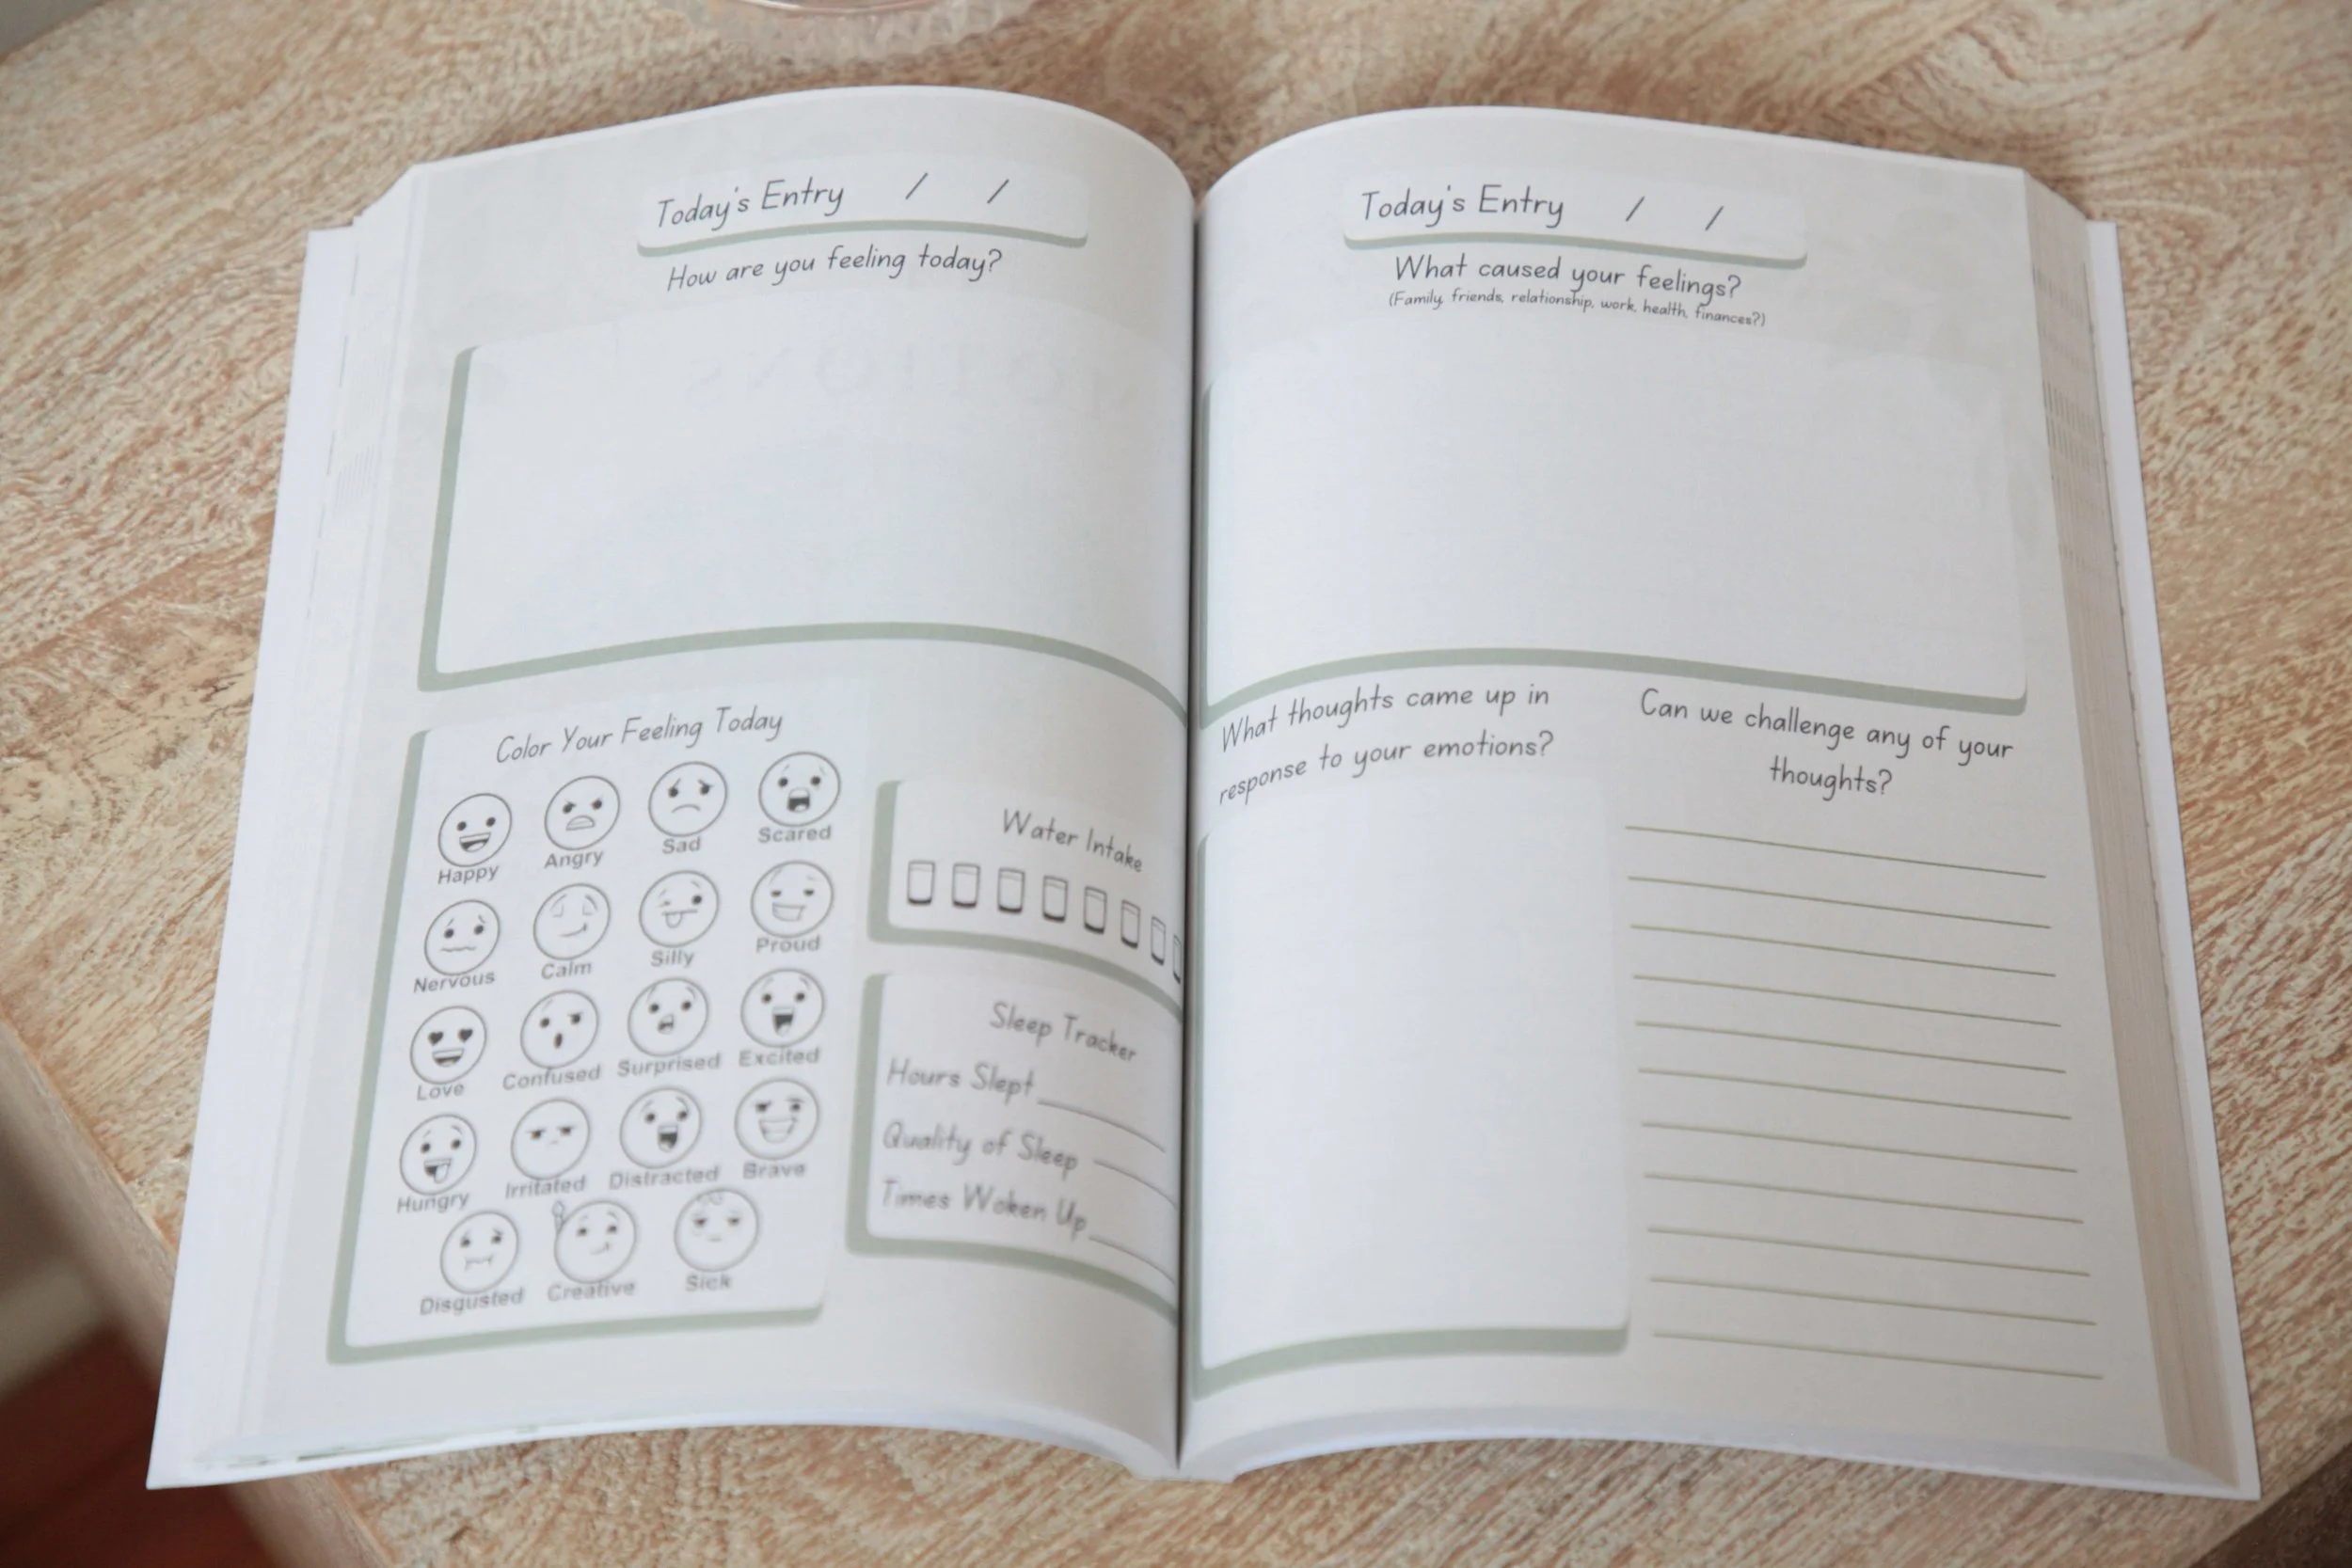 Today's Entry / /
How are you feeling today?
Color Your Feeling Today
Happy Angry Sad Scared
Nervous Calm Silly Proud
Love Confused Surprised Excited
Hungry Irritated Distracted Brave
Disgusted Creative Sick
Water Intake
Sleep Tracker
Hours Slept
Quality of Sleep
Times Woken Up
Today's Entry / /
What caused your feelings?
(Family, friends, relationship, work, health, finances?)
What thoughts came up in
response to your emotions?
Can we challenge any of your
thoughts?